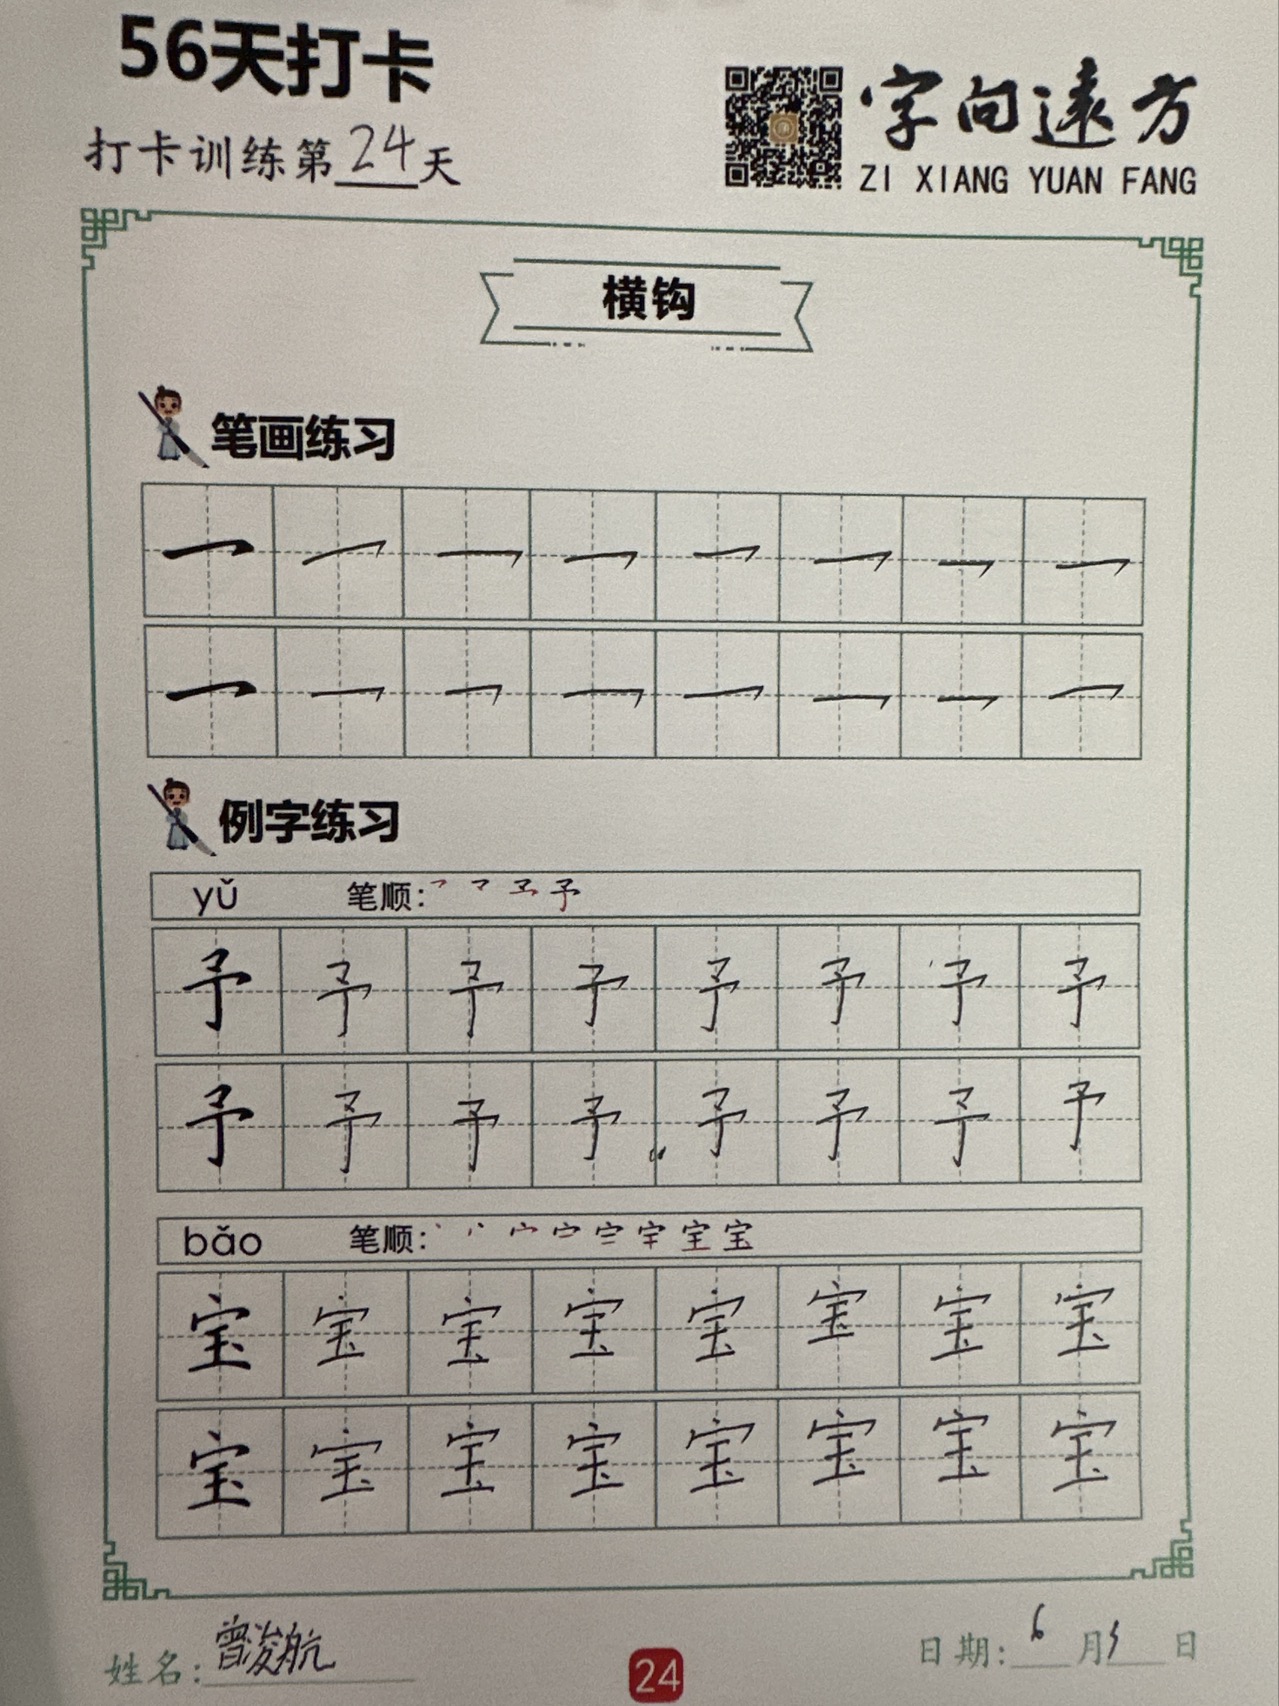 56天打卡
打卡训练第24天
字向遠方
ZI XIANG YUAN FANG
横钩
笔画练习
例字练习
yǔ 笔顺:
予 予 予 予 予 予 予 予
予 予 予 予 予 予 予 予
bǎo 笔顺:
宝 宝 宝 宝 宝 宝 宝 宝
宝 宝 宝 宝 宝 宝 宝 宝
姓名:曾浚航
24
日期:6月 日